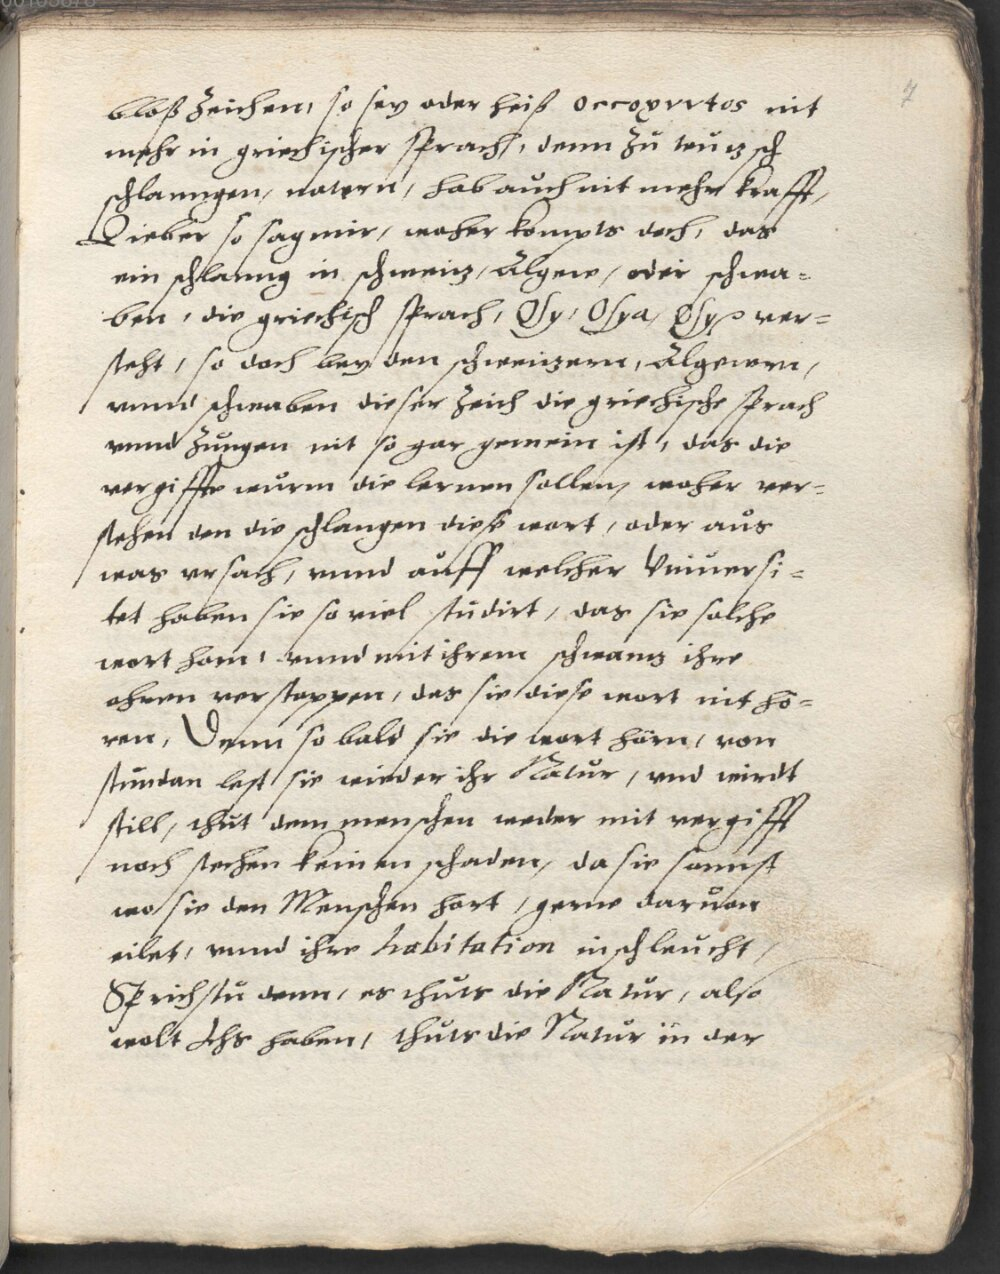 7
bloß Zeichen, so sey oder heiß occopyrtos nit
mehr in griechischer Sprach, denn Zu teutzsch
schlanngen, natern, hab auch nit mehr krafft,
Lieber so sag mir, woher kompts doch, das
ein schlanng in schweitz, Algew, oder schwa-
ben, die griechisch Sprach, Osy, Osya, Osy ver-
steht, so doch bey den schweitzern, Algewrn,
vnnd schwaben dieser Zeich die griechische Sprach
vnnd Zungen nit so gar gemein ist, das die
vergiffte wurm die lernen sollen, woher ver-
stehen den die schlangen diese wort, oder aus
was vrsach, vnnd auff welcher Vniuersi-
tet haben sie so viel studirt, das sie solche
wort horn, vnnd mit ihrem schwantz ihre
ohren verstoppen, das sie diese wort nit hö-
ren, Denn so bald sie die wort hörn, von
stundan lest sie wieder ihr Natur, vnd wirdt
still, thut dem menschen weder mit vergifft
noch stechen keinen schaden, da sie sonnst
wo sie den Menschen hort, gerne daruon
eilet, vnnd ihre habitation inschleucht,
Sprichstu denn, es thuts die Natur, also
wolt Ichs haben, thuts die Natur in der